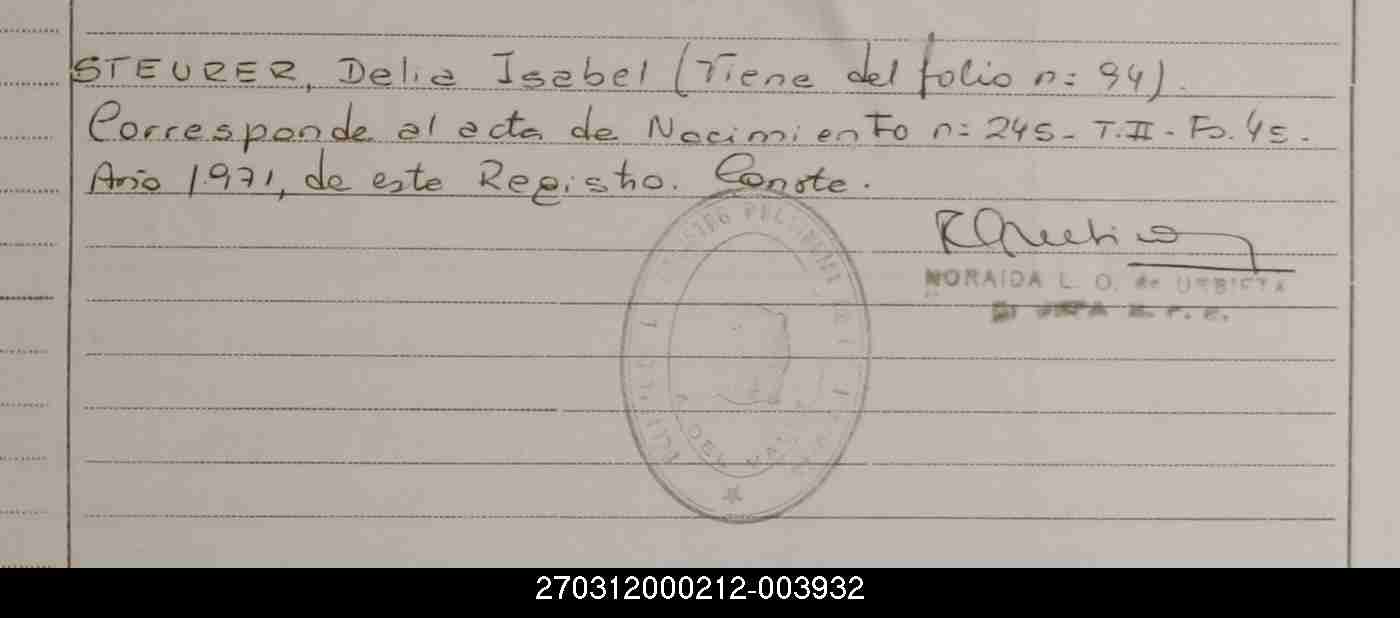 STEURER, Delia Isabel (Viene del folio n: 94).
Corresponde al acta de Nacimiento n: 245 - T.II - Fo. 45 -
Año 1971, de este Registro. Conste.
NORAIDA L. O. de URBIETA
270312000212-003932